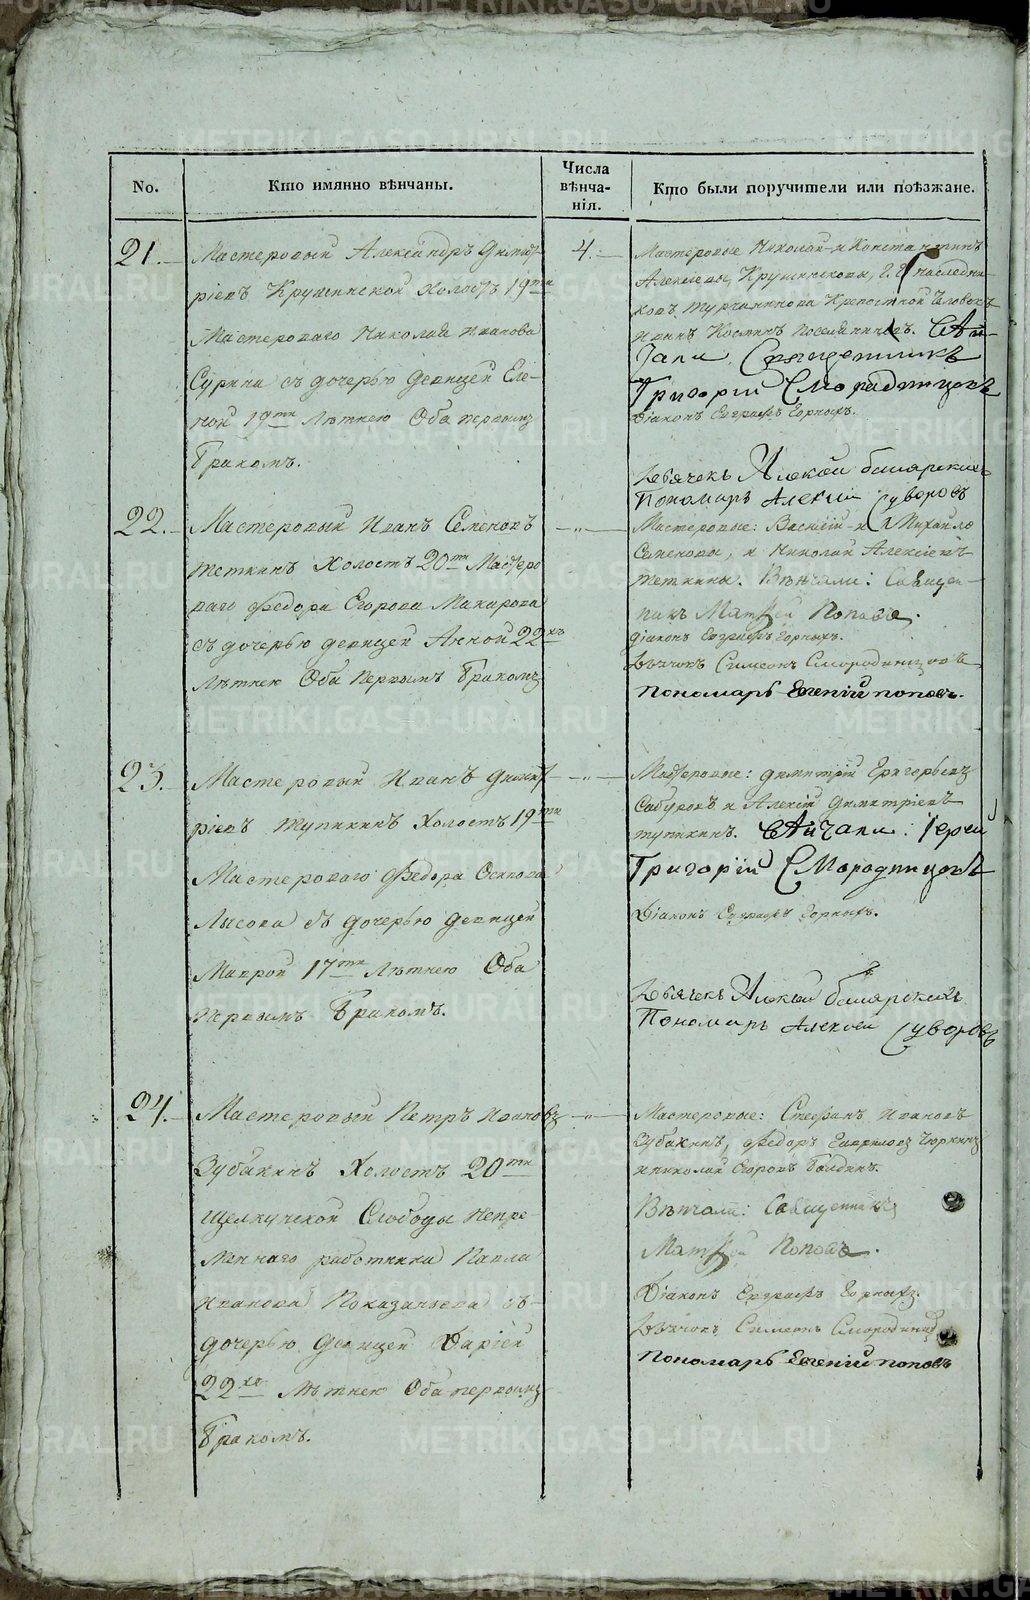 No.
Кто имянно вѣнчаны.
Числа
вѣнча-
нія.
Кто были поручители или поѣзжане.
21.
Мастеровый Александръ Димит-
ріевъ Крушинской холостъ 19ти
Мастероваго Николая Иванова
Сурина съ дочерью девицей Еле-
ной 19ти лѣтнею Оба первымъ
бракомъ.
4.
Мастеровые Николай и Константинъ
Алексеевы, Крушинсковы, Г. Г. наследни-
ковъ, Турчанинова Крепостной Человекъ
Иванъ Косминъ
Священникъ
Григорій Смородинцовъ
Діаконъ Евграфъ Горныхъ.
Дьячекъ Алексѣй
Пономарь Алексій Суворовъ
22.
Мастеровый Иванъ Семеновъ
Теткинъ Холостъ 20ти Мастеро
ваго Федора Егорова Макарова
съ дочерью девицей Анной 22хъ
лѣтнею Оба Первымъ бракомъ
— „ —
Мастеровые: Василий и Михайло
Семеновы, и Николай Алексіевъ
Теткины. Вѣнчали: Священ-
никъ Матфей Поповъ.
Діаконъ Евграфъ Горныхъ.
Дьячокъ Симеонъ Смородинцовъ
Пономарь Евгеній Поповъ.
23.
Мастеровый Иванъ Димит-
ріевъ Тупикинъ Холостъ 19ти
Мастероваго Федора Осипова
Лысова съ дочерью девицей
Маврой 17ти лѣтнею Оба
первымъ бракомъ.
— „ —
Мастеровые: Димитрій Григорьевъ
Сабуровъ и Алексій Димитріевъ
Тупикинъ. Вѣнчали: Іерей
Григорій Смородинцовъ
Діаконъ Евграфъ Горныхъ.
Дьячекъ Алексѣй
Пономарь Алексѣй Суворовъ
24.
Мастеровый Петръ Ивановъ
Зубакинъ Холостъ 20ти
Щелкунской Слободы Непре
меннаго работника Павла
Иванова Показаньева съ
дочерью девицей Дарьей
22хъ лѣтнею Оба первымъ
бракомъ.
— „ —
Мастеровые: Стефанъ Ивановъ
Зубакинъ, Федоръ Гавриловъ Чюркинъ
и Николай Егоровъ Болдинъ.
Вѣнчали: Священникъ
Матфей Поповъ.
Діаконъ Евграфъ Горныхъ.
Дьячокъ Симеонъ Смородинцовъ
Пономарь Евгеній Поповъ
METRIKI.GASO-URAL.RU